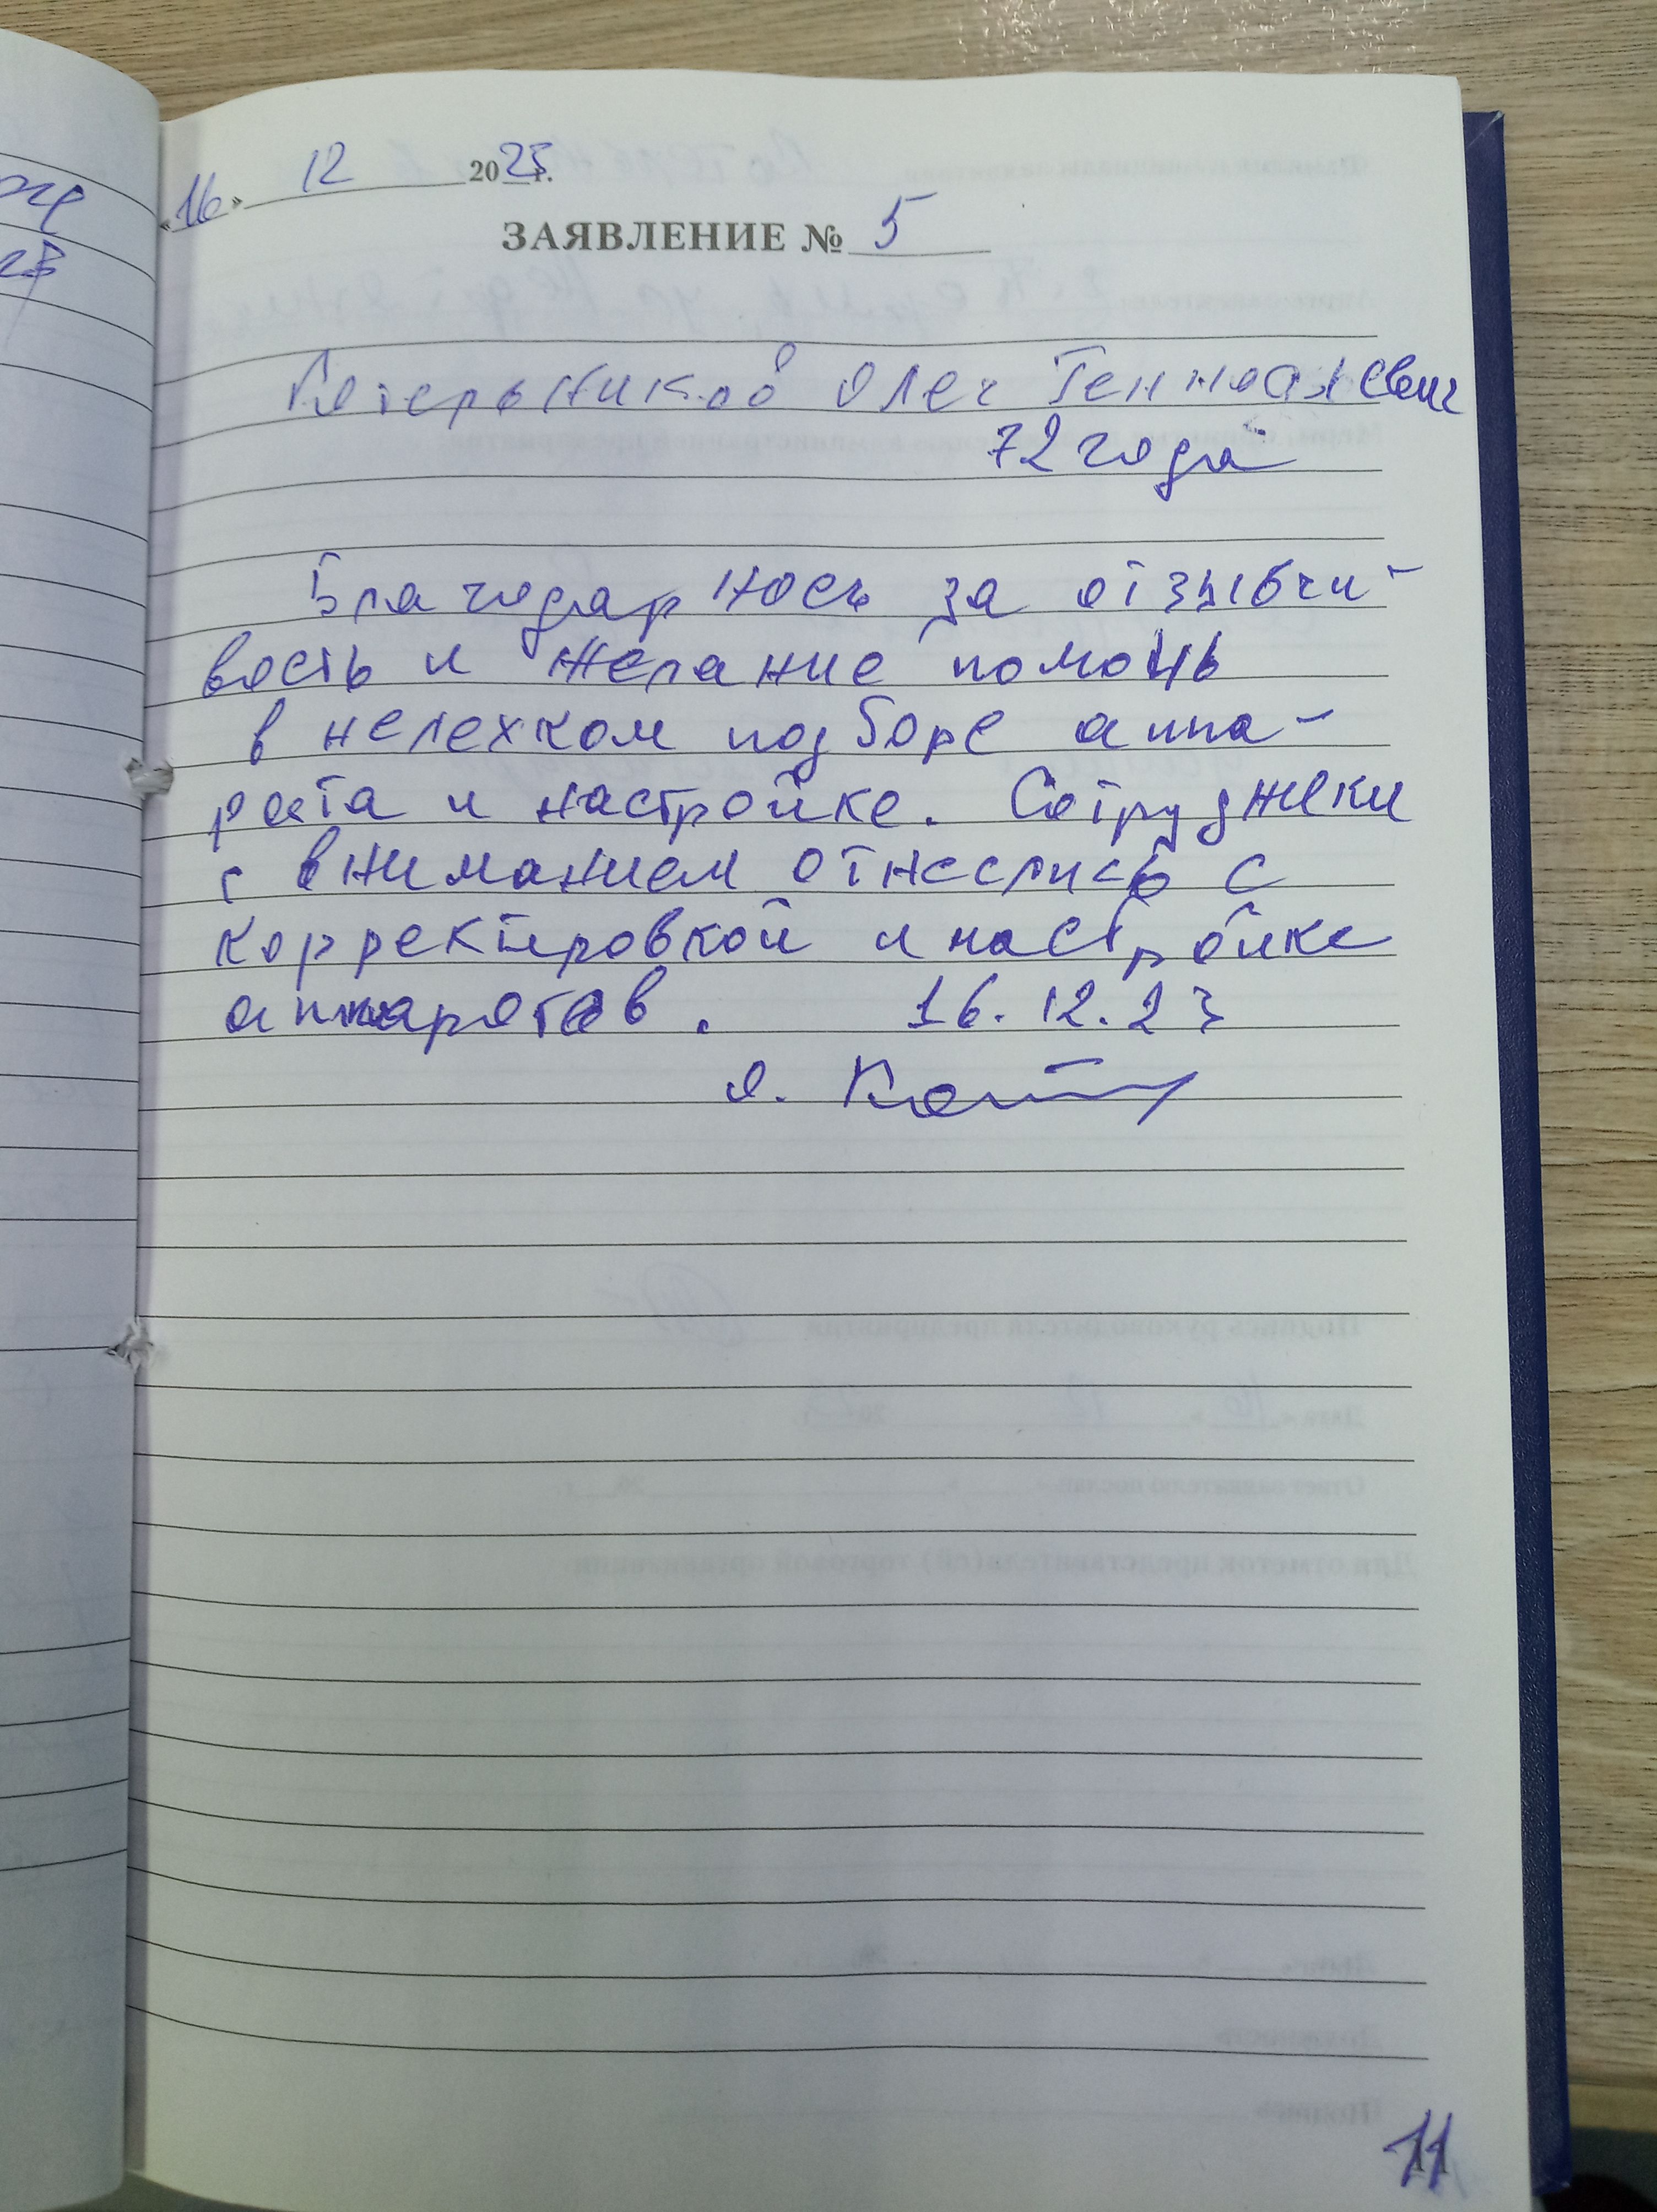 «16» 12 2023г.
ЗАЯВЛЕНИЕ № 5
Олег Геннадьевич
72 года
Благодарность за отзывчи-
вость и желание помочь
в нелехком подборе аппа-
рата и настройке. Сотрудники
с вниманием отнеслись с
корректировкой и настройке
аппаратов. 16.12.23
11